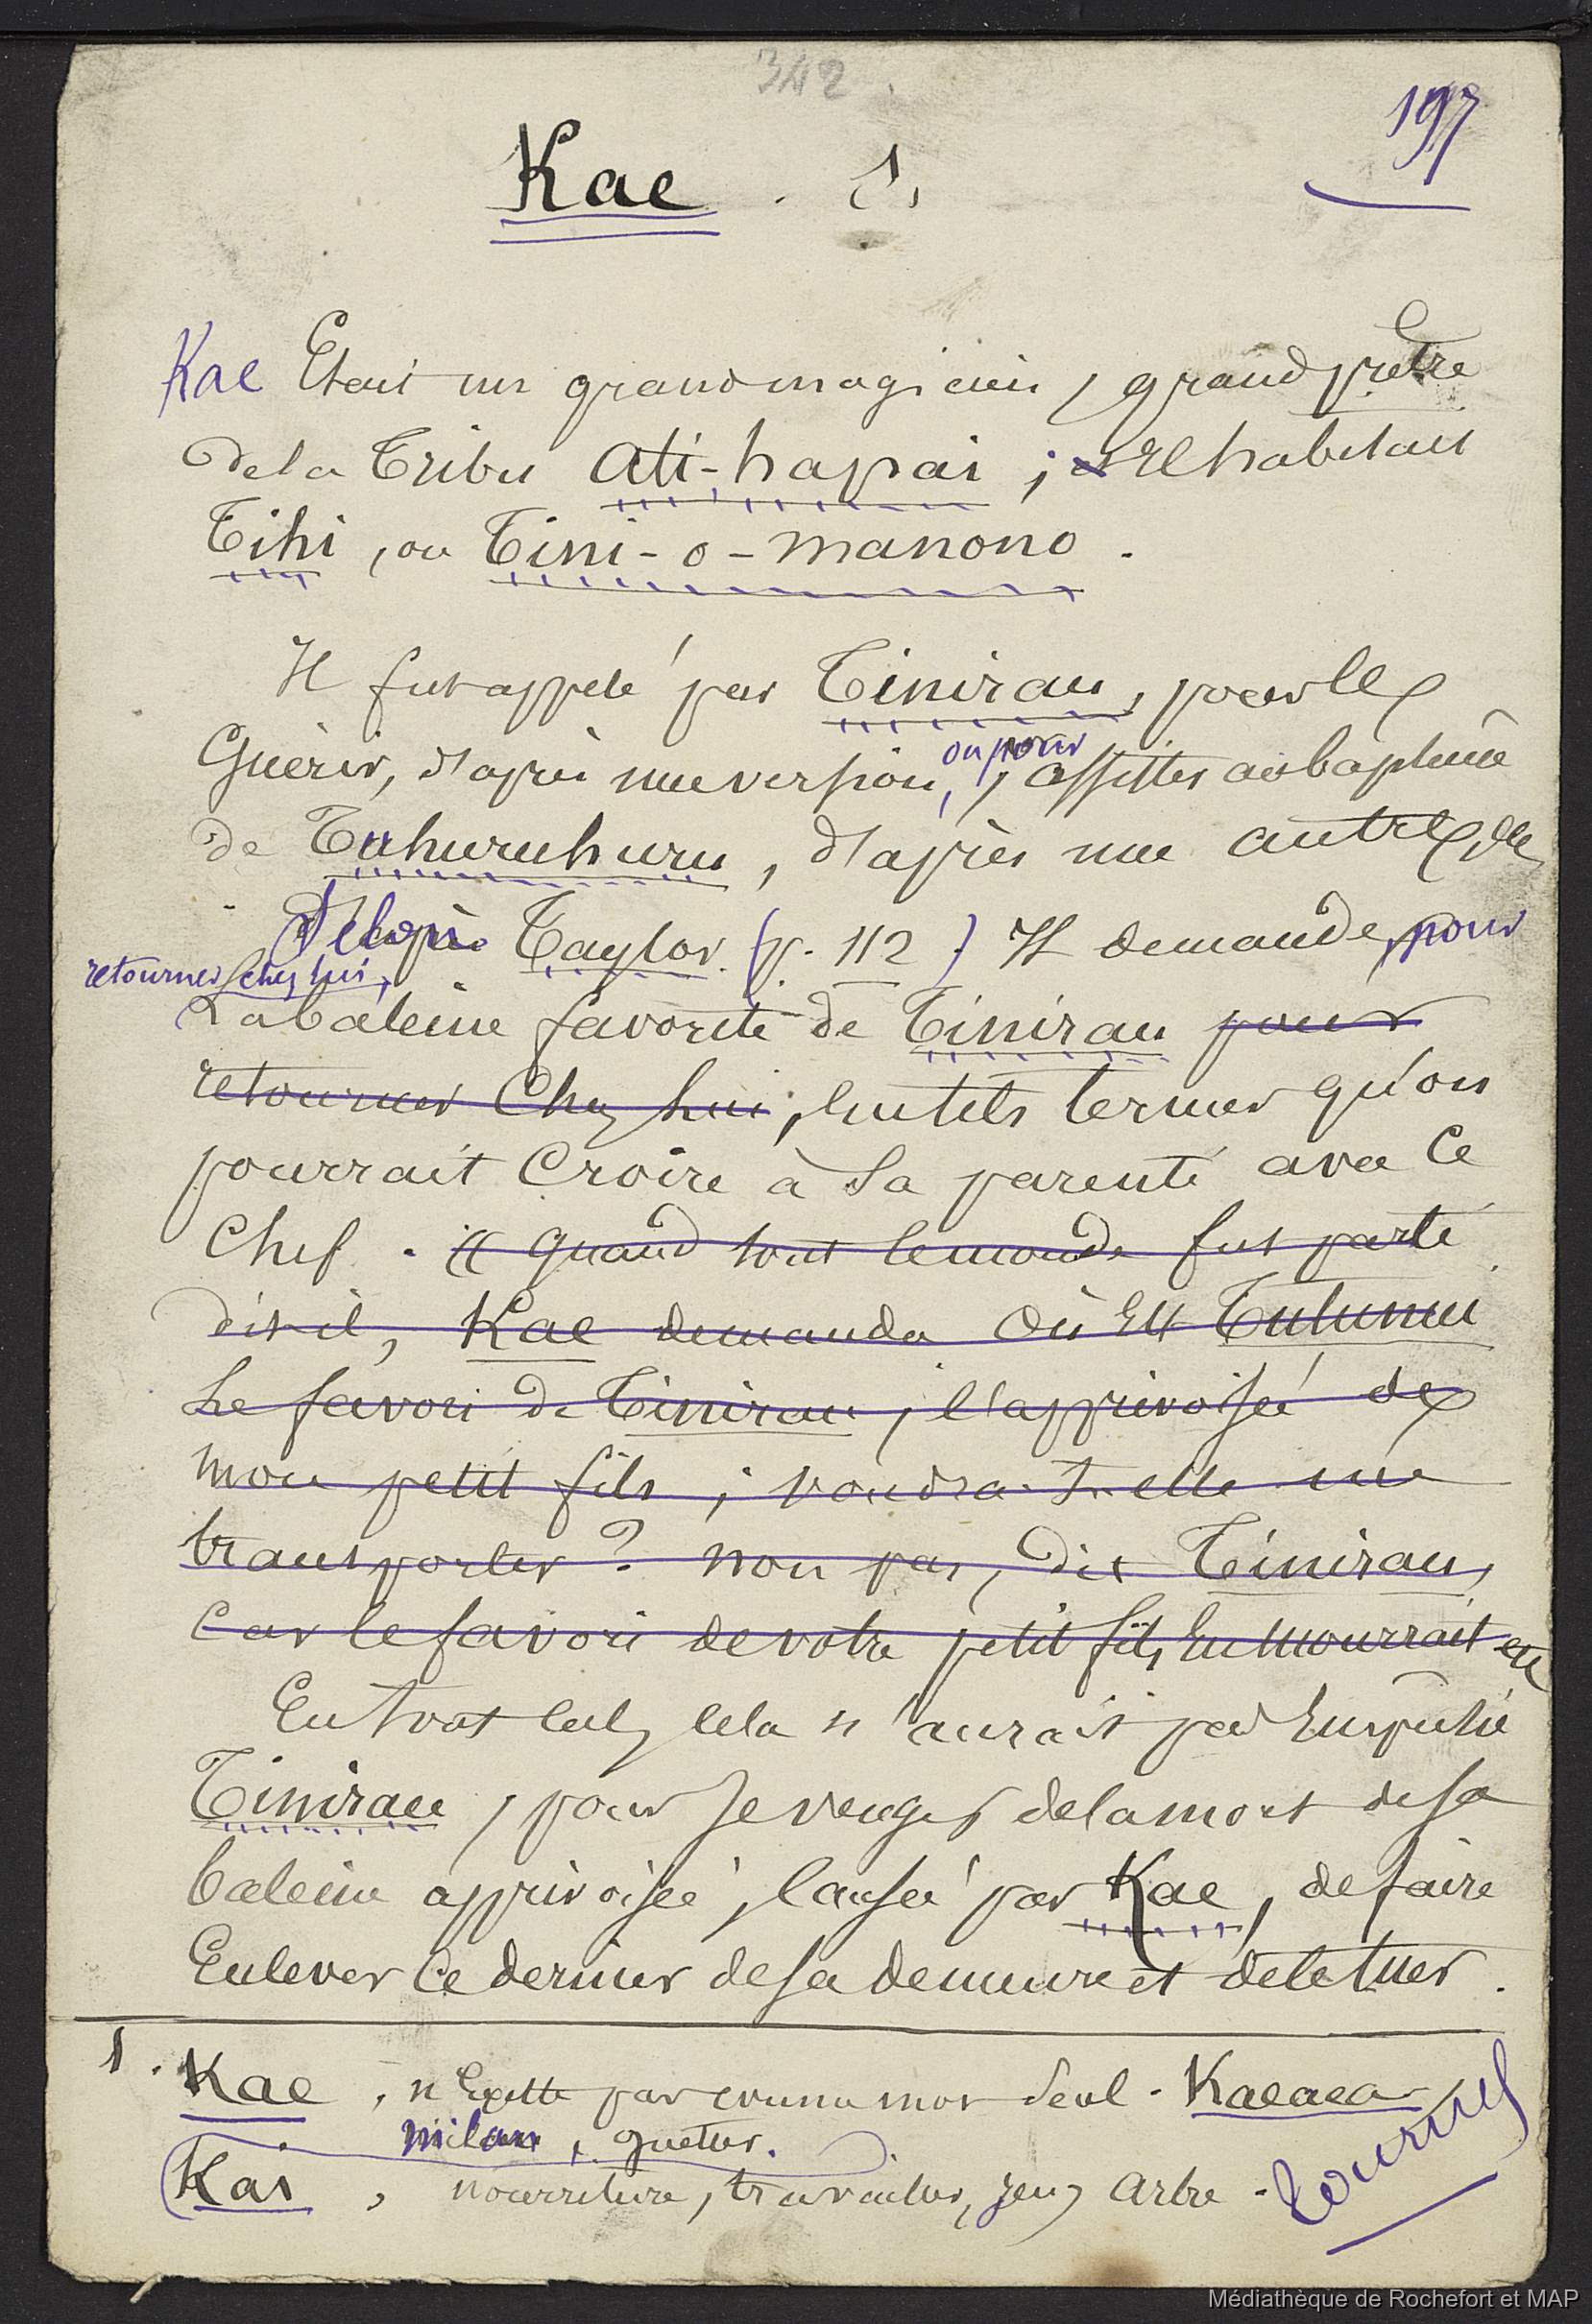 342
197
Kae . 1.
Kae Etait un grand magicien, grand prêtre
de la Tribu Ati-hapai ; Il habitait
Tihi, ou Tini-o-manono.
Il fut appelé par Tinirau, pour le
Guérir, d'après une version, ou pour assister au baptême
de Tuhuruhuru, d'après une autre, de
Taylor (p. 112). Il demande, pour
retourner chez lui,
La baleine favorite de Tinirau pour
retourner Chez lui, en tels termes qu'on
pourrait Croire à sa parenté avec Ce
Chef. « Quand tout le monde fut parti
dit-il, Kae demanda Où Est Tutunui
Le favori de Tinirau, l'apprivoisé de
mon petit fils ; voudra-t-elle me
transporter ? Non pas, dit Tinirau,
Car le favori de votre petit fils En Mourrait etc
En tout cas, cela n'aurait pas Empêché
Tinirau, pour se venger de la mort de sa
baleine apprivoisée, causée par Kae, de faire
Enlever Ce dernier de sa demeure et de le tuer.
1. Kae, n'Existe pas comme mot seul. Kaeaea
milan, guetter.
Kai, nourriture, travailler, jeu, Arbre.
tournez
Médiathèque de Rochefort et MAP